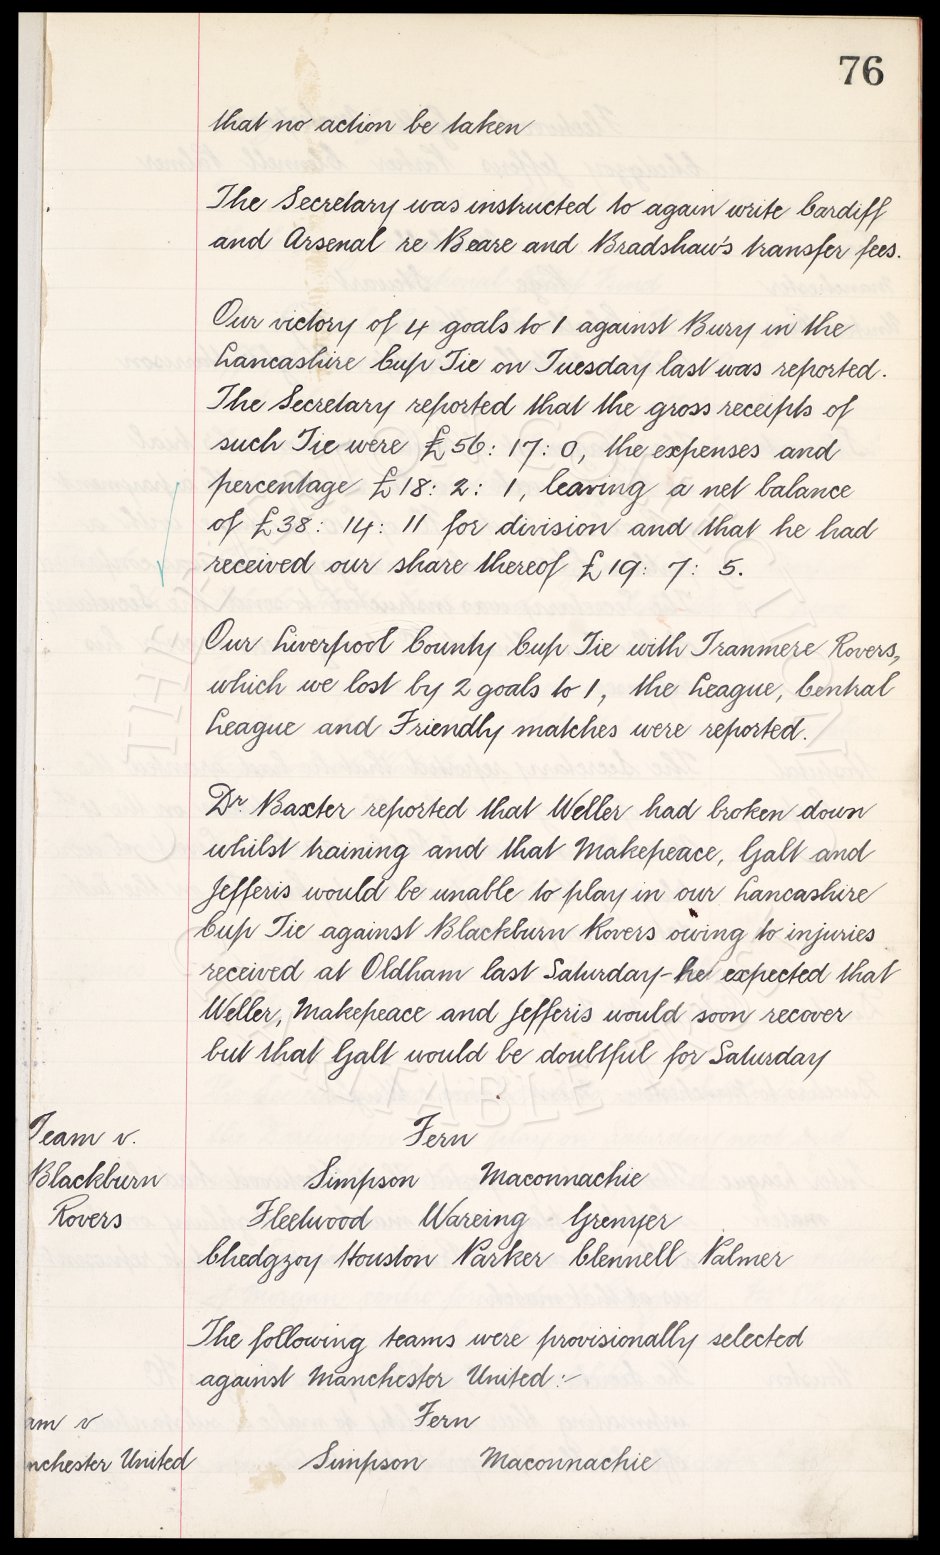 76
that no action be taken
The Secretary was instructed to again write Cardiff
and Arsenal re Beare and Bradshaw's transfer fees.
Our victory of 4 goals to 1 against Bury in the
Lancashire Cup Tie on Tuesday last was reported.
The Secretary reported that the gross receipts of
such Tie were £56: 17: 0, the expenses and
percentage £18: 2: 1, leaving a net balance
of £38: 14: 11 for division and that he had
received our share thereof £19: 7: 5.
Our Liverpool County Cup Tie with Tranmere Rovers,
which we lost by 2 goals to 1, the League, Central
League and Friendly matches were reported.
Dr. Baxter reported that Weller had broken down
whilst training and that Makepeace, Galt and
Jefferis would be unable to play in our Lancashire
Cup Tie against Blackburn Rovers owing to injuries
received at Oldham last Saturday - he expected that
Weller, Makepeace and Jefferis would soon recover
but that Galt would be doubtful for Saturday
Team v. Fern
Blackburn Simpson Maconnachie
Rovers Fleetwood Wareing Grenyer
Chedgzoy Houston Parker Clennell Palmer
The following teams were provisionally selected
against Manchester United:-
am v Fern
nchester United Simpson Maconnachie